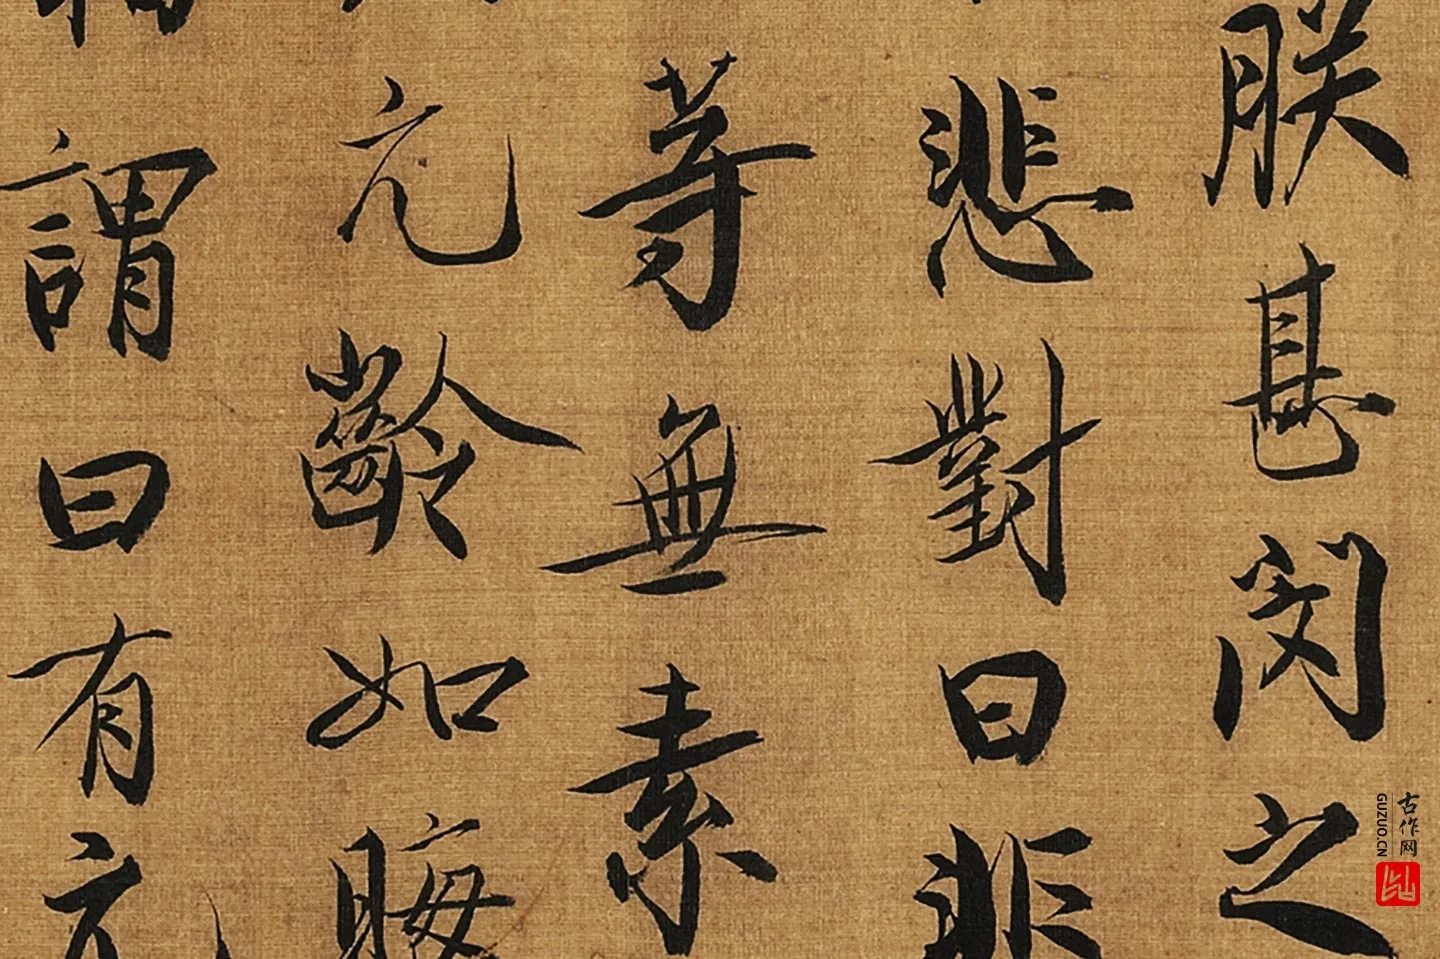 朕甚閔之
悲對曰非
等無素
亢齡如晦
謂曰有亢
古作网
GUZUO.CN